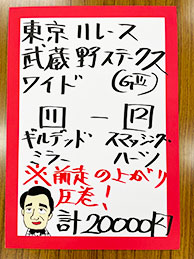 東京11レース
武蔵野ステークス
ワイド (GⅢ)
11 - 12
ギルデッド スマッジング
ミラー ハーツ
※前走の上がり
圧巻!
計20000円